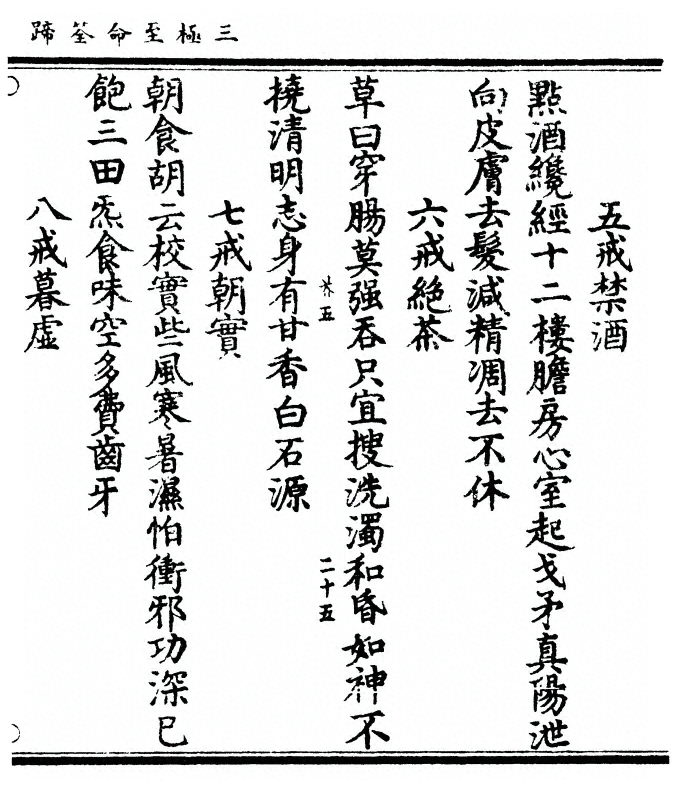 三極至命筌蹄
五戒禁酒
點酒纔經十二樓膽房心室起戈矛真陽泄
向皮膚去髮減精凋去不休
六戒絕茶
草曰穿腸莫强吞只宜搜洗濁和昏如神不
撓清明志身有甘香白石源
茶五
二十五
七戒朝實
朝食胡云校實些風寒暑濕怕衝邪功深已
飽三田炁食味空多費齒牙
八戒暮虛